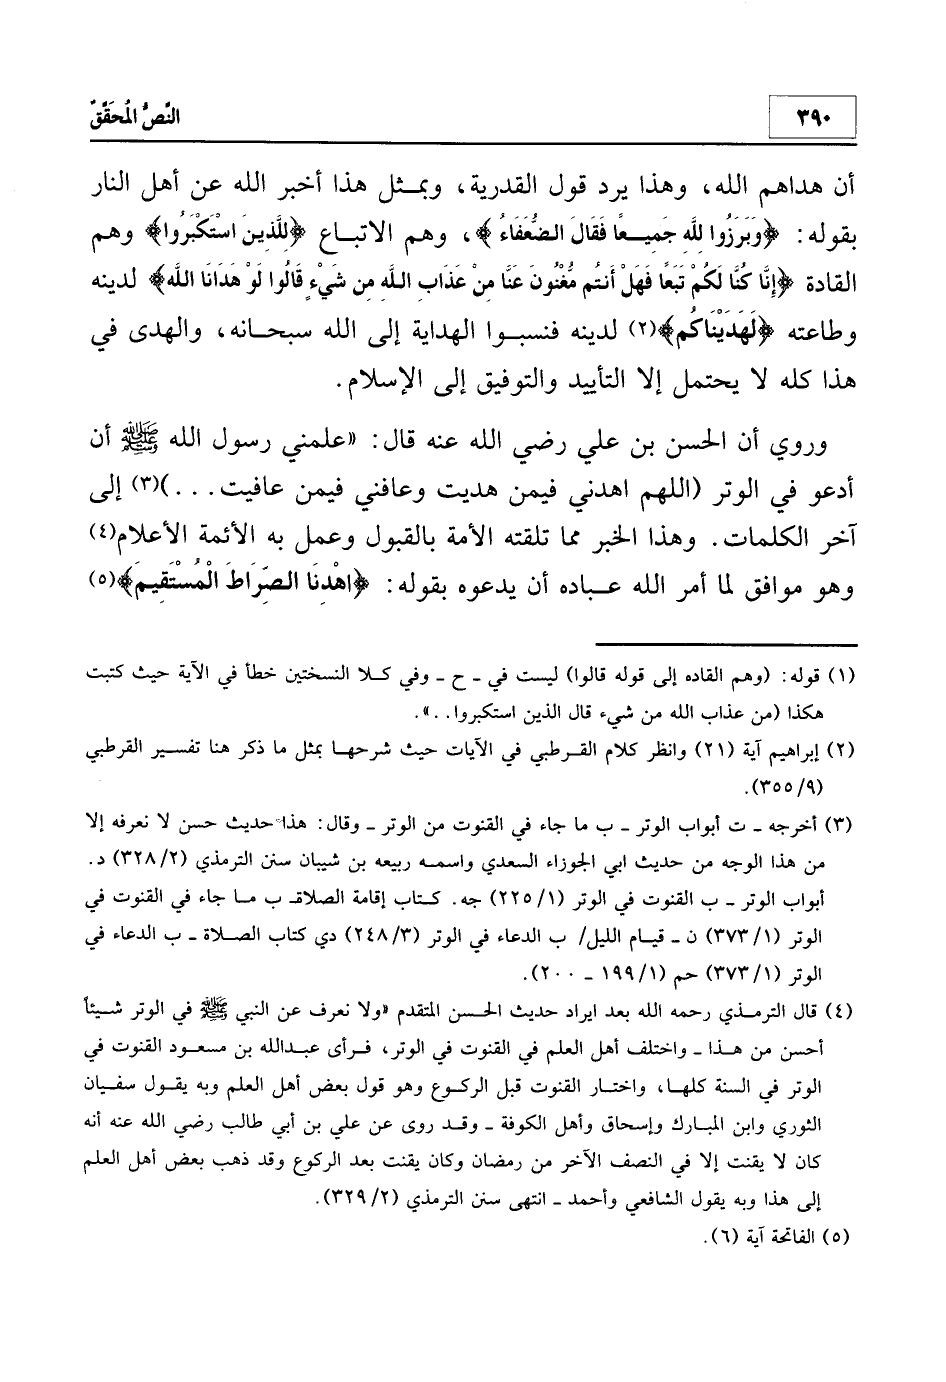 ٣٩٠
النَّصُّ المُحَقَّقُ
أن هداهم الله، وهذا يرد قول القدرية، وبمثل هذا أخبر الله عن أهل النار
بقوله: ﴿وَبَرَزُوا لِلَّهِ جَمِيعاً فَقَالَ الضُّعَفَاءُ﴾، وهم الاتباع ﴿لِلَّذِينَ اسْتَكْبَرُوا﴾ وهم
القادة ﴿إِنَّا كُنَّا لَكُمْ تَبَعاً فَهَلْ أَنتُم مُّغْنُونَ عَنَّا مِنْ عَذَابِ اللَّهِ مِن شَيْءٍ قَالُوا لَوْ هَدَانَا اللَّه﴾ لدينه
وطاعته ﴿لَهَدَيْنَاكُم﴾(٢) لدينه فنسبوا الهداية إلى الله سبحانه، والهدى في
هذا كله لا يحتمل إلا التأييد والتوفيق إلى الإسلام.
وروي أن الحسن بن علي رضي الله عنه قال: «علمني رسول الله ﷺ أن
أدعو في الوتر (اللهم اهدني فيمن هديت وعافني فيمن عافيت...)(٣) إلى
آخر الكلمات. وهذا الخبر مما تلقته الأمة بالقبول وعمل به الأئمة الأعلام(٤)
وهو موافق لما أمر الله عباده أن يدعوه بقوله: ﴿اهْدِنَا الصِّرَاطَ الْمُسْتَقِيمَ﴾(٥)
(١) قوله: (وهم القاده إلى قوله قالوا) ليست في ـ ح ـ وفي كلا النسختين خطأ في الآية حيث كتبت
هكذا (من عذاب الله من شيء قال الذين استكبروا..».
(٢) إبراهيم آية (٢١) وانظر كلام القرطبي في الآيات حيث شرحها بمثل ما ذكر هنا تفسير القرطبي
(٣٥٥/٩).
(٣) أخرجه ـ ت أبواب الوتر ـ ب ما جاء في القنوت من الوتر ـ وقال: هذا حديث حسن لا نعرفه إلا
من هذا الوجه من حديث ابي الجوزاء السعدي واسمه ربيعه بن شيبان سنن الترمذي (٣٢٨/٢) د.
أبواب الوتر ـ ب القنوت في الوتر (٢٢٥/١) جه. كتاب إقامة الصلاة ـ ب ما جاء في القنوت في
الوتر (٣٧٣/١) ن ـ قيام الليل/ ب الدعاء في الوتر (٢٤٨/٣) دي كتاب الصلاة ـ ب الدعاء في
الوتر (٣٧٣/١) حم (١٩٩/١ ـ ٢٠٠).
(٤) قال الترمذي رحمه الله بعد ايراد حديث الحسن المتقدم «ولا نعرف عن النبي ﷺ في الوتر شيئاً
أحسن من هذا ـ واختلف أهل العلم في القنوت في الوتر، فرأى عبدالله بن مسعود القنوت في
الوتر في السنة كلها، واختار القنوت قبل الركوع وهو قول بعض أهل العلم وبه يقول سفيان
الثوري وابن المبارك وإسحاق وأهل الكوفة ـ وقد روى عن علي بن أبي طالب رضي الله عنه أنه
كان لا يقنت إلا في النصف الآخر من رمضان وكان يقنت بعد الركوع وقد ذهب بعض أهل العلم
إلى هذا وبه يقول الشافعي وأحمد ـ انتهى سنن الترمذي (٣٢٩/٢).
(٥) الفاتحة آية (٦).